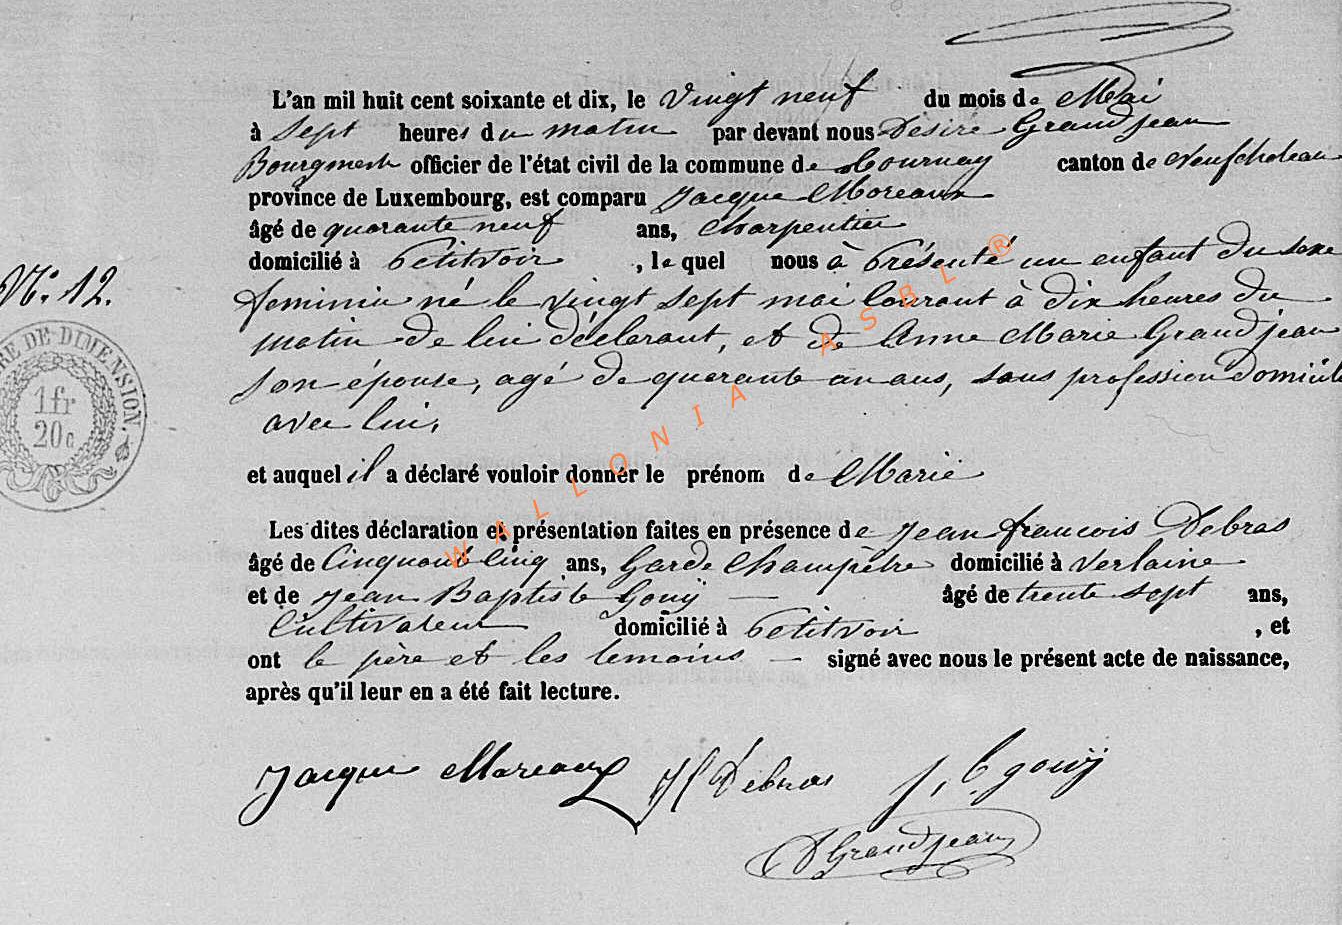 L'an mil huit cent soixante et dix, le vingt neuf du mois de Mai
à sept heures du matin par devant nous Désiré Grandjean
Bourgmestre officier de l'état civil de la commune de Tournay canton de Neufchateau
province de Luxembourg, est comparu Jacque Moreaux
âgé de quarante neuf ans, Charpentier
domicilié à Petitvoir, lequel nous à Présenté un enfant du sexe
N° 12.
feminin né le vingt sept mai Courant à dix heures du
matin de lui déclarant, et de Anne Marie Grandjean
son épouse, agé de quarante un ans, sans profession domicilié
avec lui,
RE DE DIMENSION.
1 fr
20 c
et auquel il a déclaré vouloir donner le prénom de Marie
Les dites déclaration et présentation faites en présence de Jean francois Debras
âgé de Cinquante Cinq ans, Garde Champêtre domicilié à Verlaine
et de Jean Baptiste Gouÿ — âgé de trente sept ans,
Cultivateur domicilié à Petitvoir, et
ont le père et les temoins — signé avec nous le présent acte de naissance,
après qu'il leur en a été fait lecture.
Jacque Moreaux Jf Debras J, B gouÿ
D Grandjean
WALLONIA ASBL ®